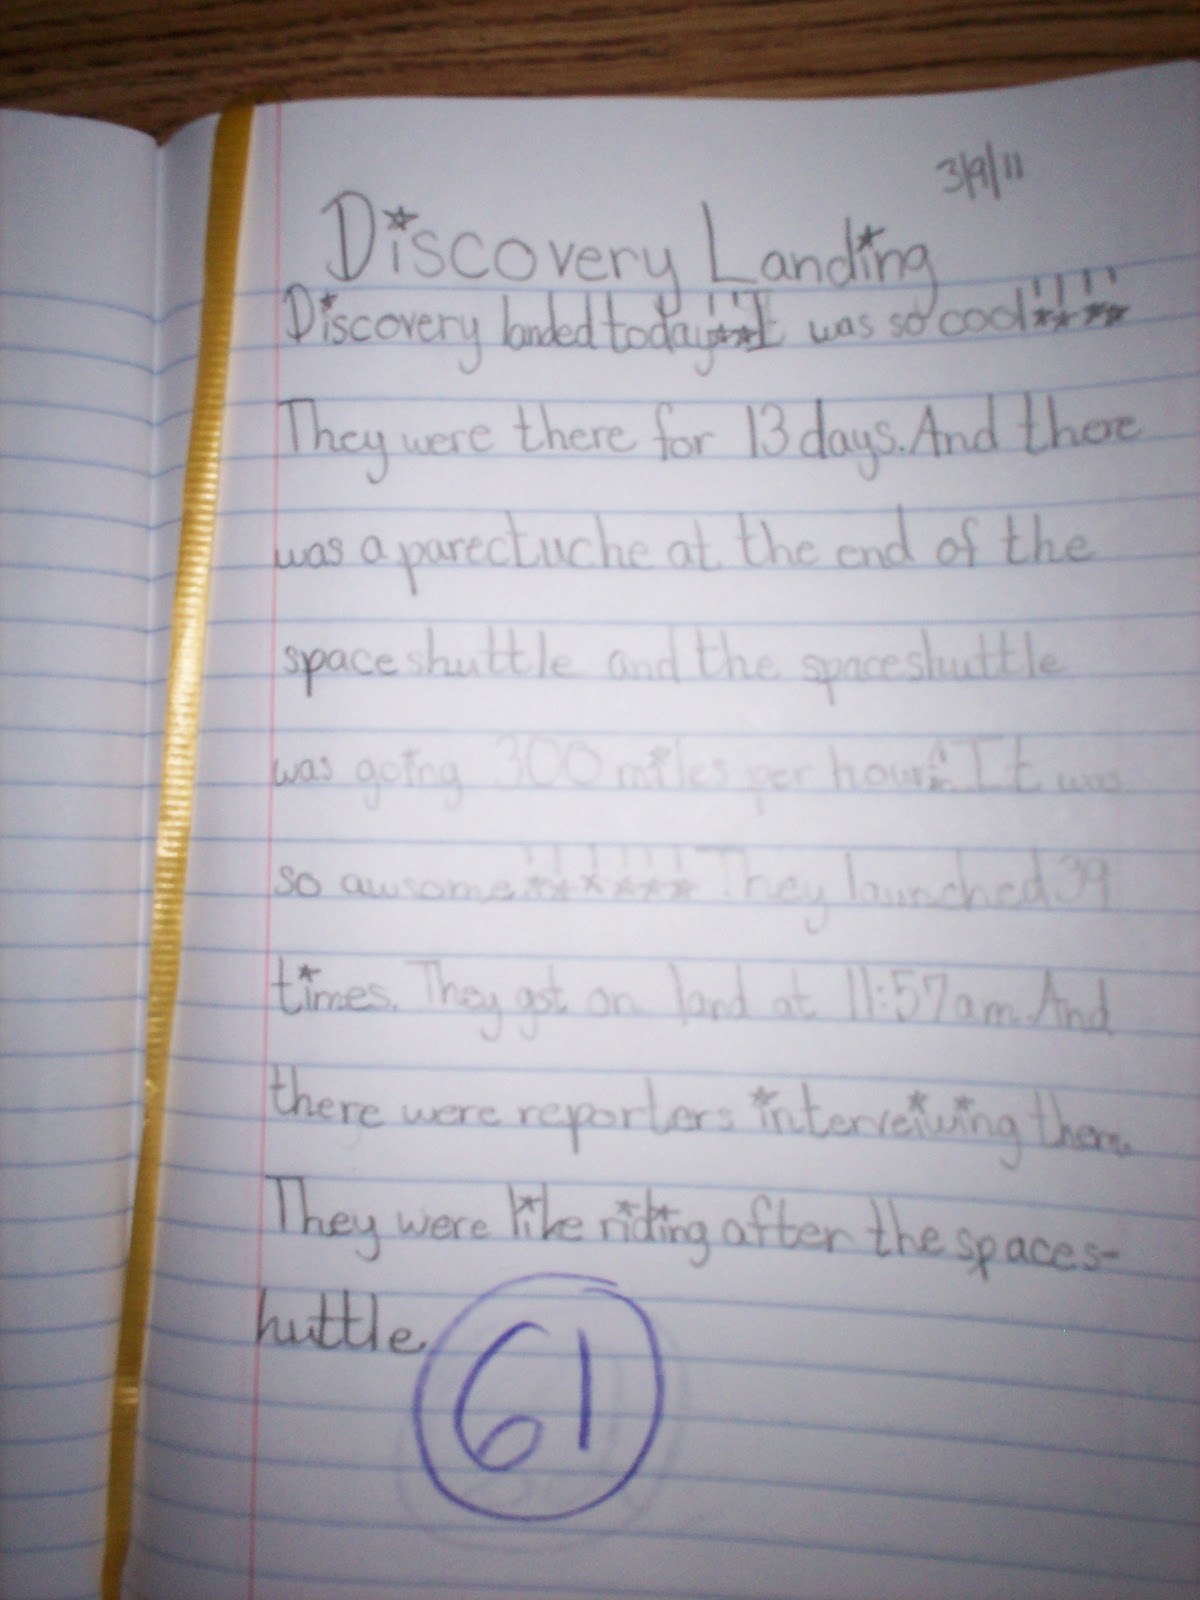 3/9/11
Discovery Landing
Discovery landed today!!! It was so cool!!!!
They were there for 13 days. And there
was a parectuche at the end of the
space shuttle and the spaceshuttle
was going 300 miles per hour! It was
so awsome!!!!!! They launched 39
times. They got on land at 11:57am. And
there were reporters interveiwing them.
They were like riding after the spaces-
huttle.
61